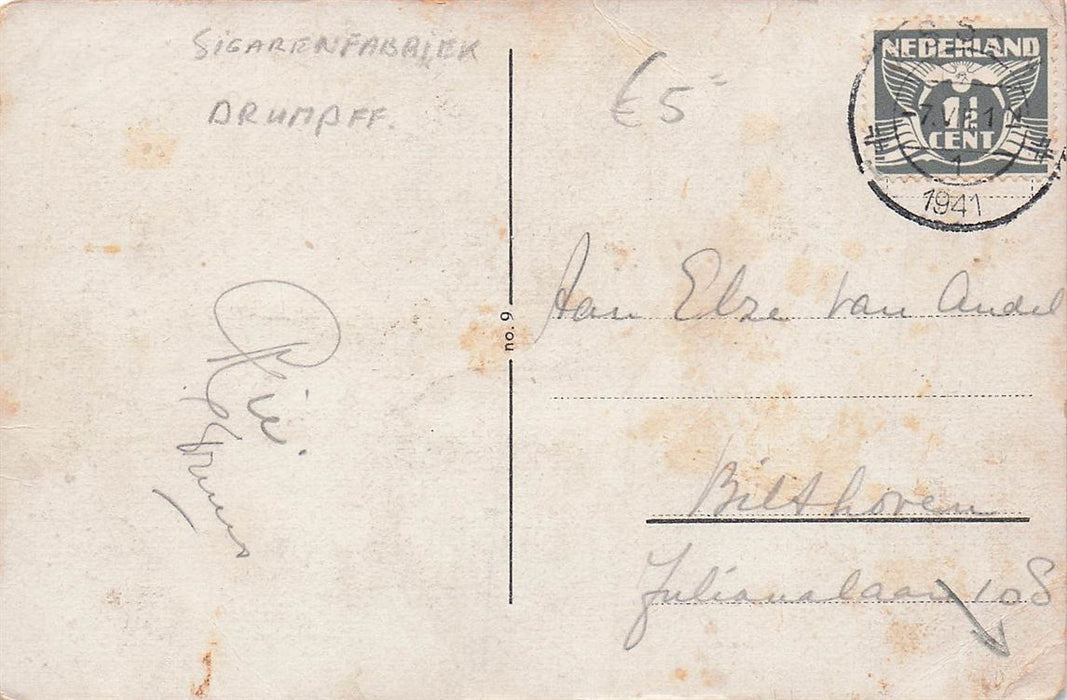 SIGARENFABRIEK
DRUMPFF.
€5=
NEDERLAND
1½
CENT
1
1941
Aan Elze van Andel
no. 9
Bilthoven
Julianalaan 108